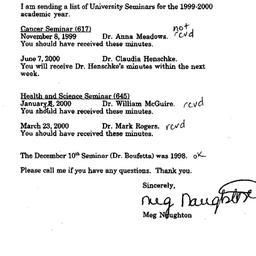 I am sending a list of University Seminars for the 1999-2000
academic year.
Cancer Seminar (617) not
November 8, 1999 Dr. Anna Meadows. rcvd
You should have received these minutes.
June 7, 2000 Dr. Claudia Henschke.
You will receive Dr. Henschke's minutes within the next
week.
Health and Science Seminar (645)
January 2000 Dr. William McGuire. rcvd
You should have received these minutes.
March 23, 2000 Dr. Mark Rogers. rcvd
You should have received these minutes.
The December 10th Seminar (Dr. Boufetta) was 1998. OK
Please call me if you have any questions. Thank you.
Sincerely,
Meg Naughton
Meg Naughton